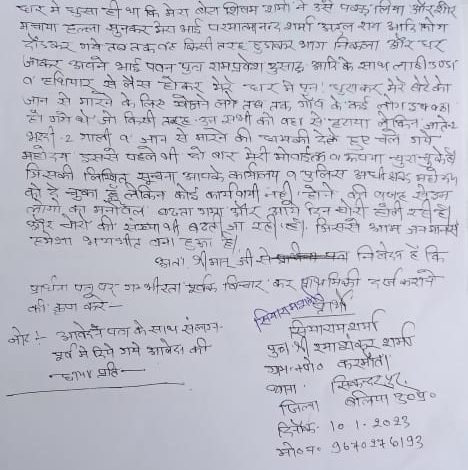 घर में घुसा ही था कि मेरा बेटा शिवम शर्मा ने उसे पकड़ लिया और शोर
मचाया हल्ला सुनकर मेरा भाई परमात्मानन्द शर्मा अंचल राय आदि लोग
दौड़कर गये तब तक वह किसी तरह छुड़ाकर भाग निकला और घर
जाकर अपने भाई पवन पुत्र रामप्रवेश आदि के साथ लाठी डण्डा
व हथियार से लैस होकर मेरे घर में पुनः घुसकर मेरे बेटे को
जान से मारने के लिए खोजने लगे तब तक गाँव के कई लोग इकठ्ठा
हो गये जो किसी तरह उन सभी को वहा से हटाया लेकिन जाते-2
भद्दी-2 गाली व जान से मारने की धमकी देते हुए चले गये
महोदय इससे पहले भी दो बार मेरी मोबाईल व रूपया चुरा चुके है
जिसकी लिखित सूचना आपके कार्यालय व पुलिस अधीक्षक महोदय
को दे चुका हूँ लेकिन कोई कार्यवाही नही होने की वजह से उन
लोगो का मनोबल बढता गया और आये दिन चोरी होती रही है
और चोरो की संख्या भी बढती जा रही है। जिससे आम जनमानस
हमेशा भयभीत बना हुआ है।
अतः श्रीमान् जी से निवेदन है कि
प्रार्थना पत्र पर गम्भीरता पूर्वक विचार कर प्राथमिकी दर्ज कराने
की कृपा करे—
नोट:- आवेदन पत्र के साथ संलग्न
पूर्व में दिये गये आवेदन की
छाया प्रति—
सियाराम शर्मा
प्रार्थी
सियाराम शर्मा
पुत्र श्री शर्मा
ग्राम+पो० करमौता
थाना सिकन्दरपुर
जिला बलिया उ०प्र०
दिनांक- 10.1.2023
मो०न० 9670276193